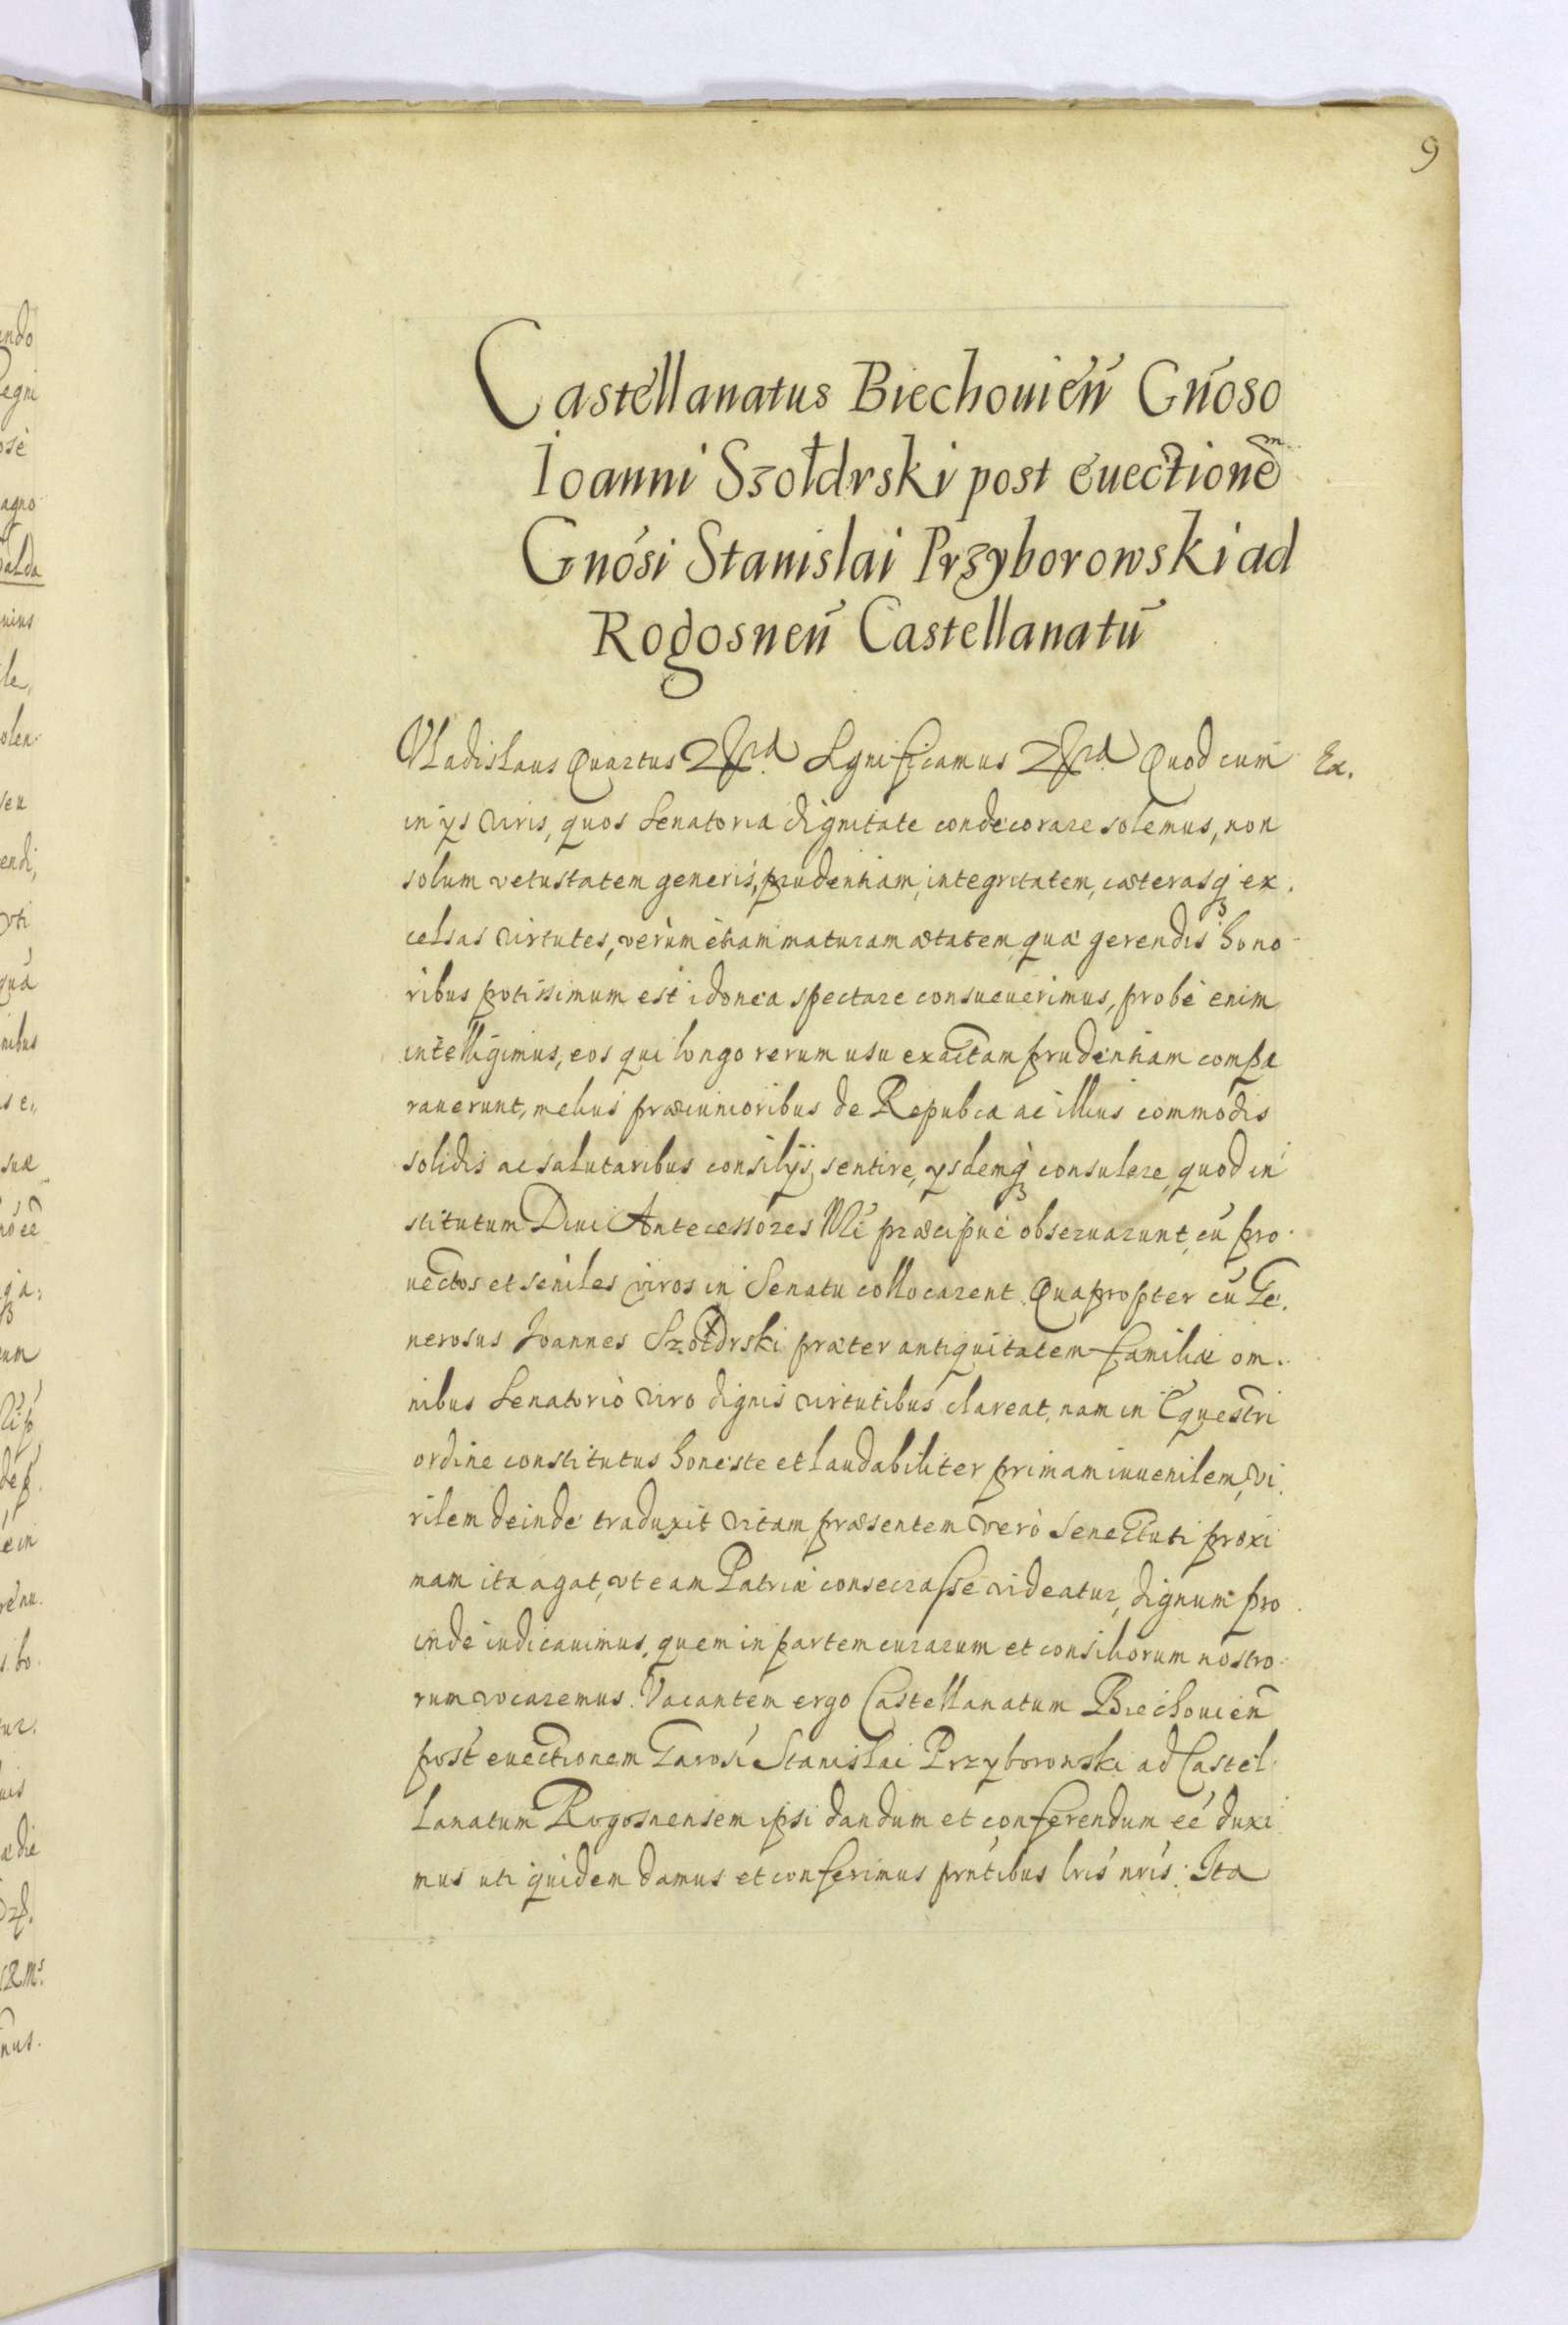 9
Castellanatus Biechouień Gnoso
Ioanni Szołdrski post euectionem
Gnosi Stanislai Przyborowski ad
Rogosneñ Castellanatū
Vladislaus Quartus Significamus Quod cum Ex.
in ys viris, quos Senatoria dignitate condecorare solemus, non
solum vetustatem generis, prudentiam, integritatem, cæterasq; ex.
celsas virtutes, verùm etiam maturam ætatem quæ gerendis hono
ribus potissimum est idonea spectare consueuerimus, probè enim
intelligimus, eos qui longo rerum usu exactam prudentiam compa
rauerunt, melius præ iunioribus de Repubca ac illius commodis
solidis ac salutaribus consilijs sentire, ysdemq; consulere, quod in
stitutum Diui Antecessores Nri præcipuè obseruarunt, cū pro
uectos et seniles viros in Senatu collocarent. Quapropter cū Ge.
nerosus Joannes Szołdrski præter antiquitatem familiæ om.
nibus Senatorio viro dignis virtutibus clareat, nam in Equestri
ordine constitutus honeste et laudabiliter primam iuuenilem, vi.
rilem deinde traduxit vitam præsentem verò senectuti proxi
mam ita agat, vt eam Patriæ consecrasse videatur, dignum pro
inde iudicauimus, quem in partem curarum et consiliorum nostro
rum vocaremus. Vacantem ergo Castellanatum Biechouień
post euectionem Garosi Stanislai Przyborowski ad Castel
lanatum Rogosnensem ipsi dandum et conferendum eé duxi
mus uti quidem damus et conferimus prntibus lris nris. Ita